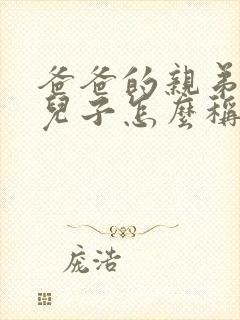 爸爸的親弟
兒子怎麼稱
庞浩